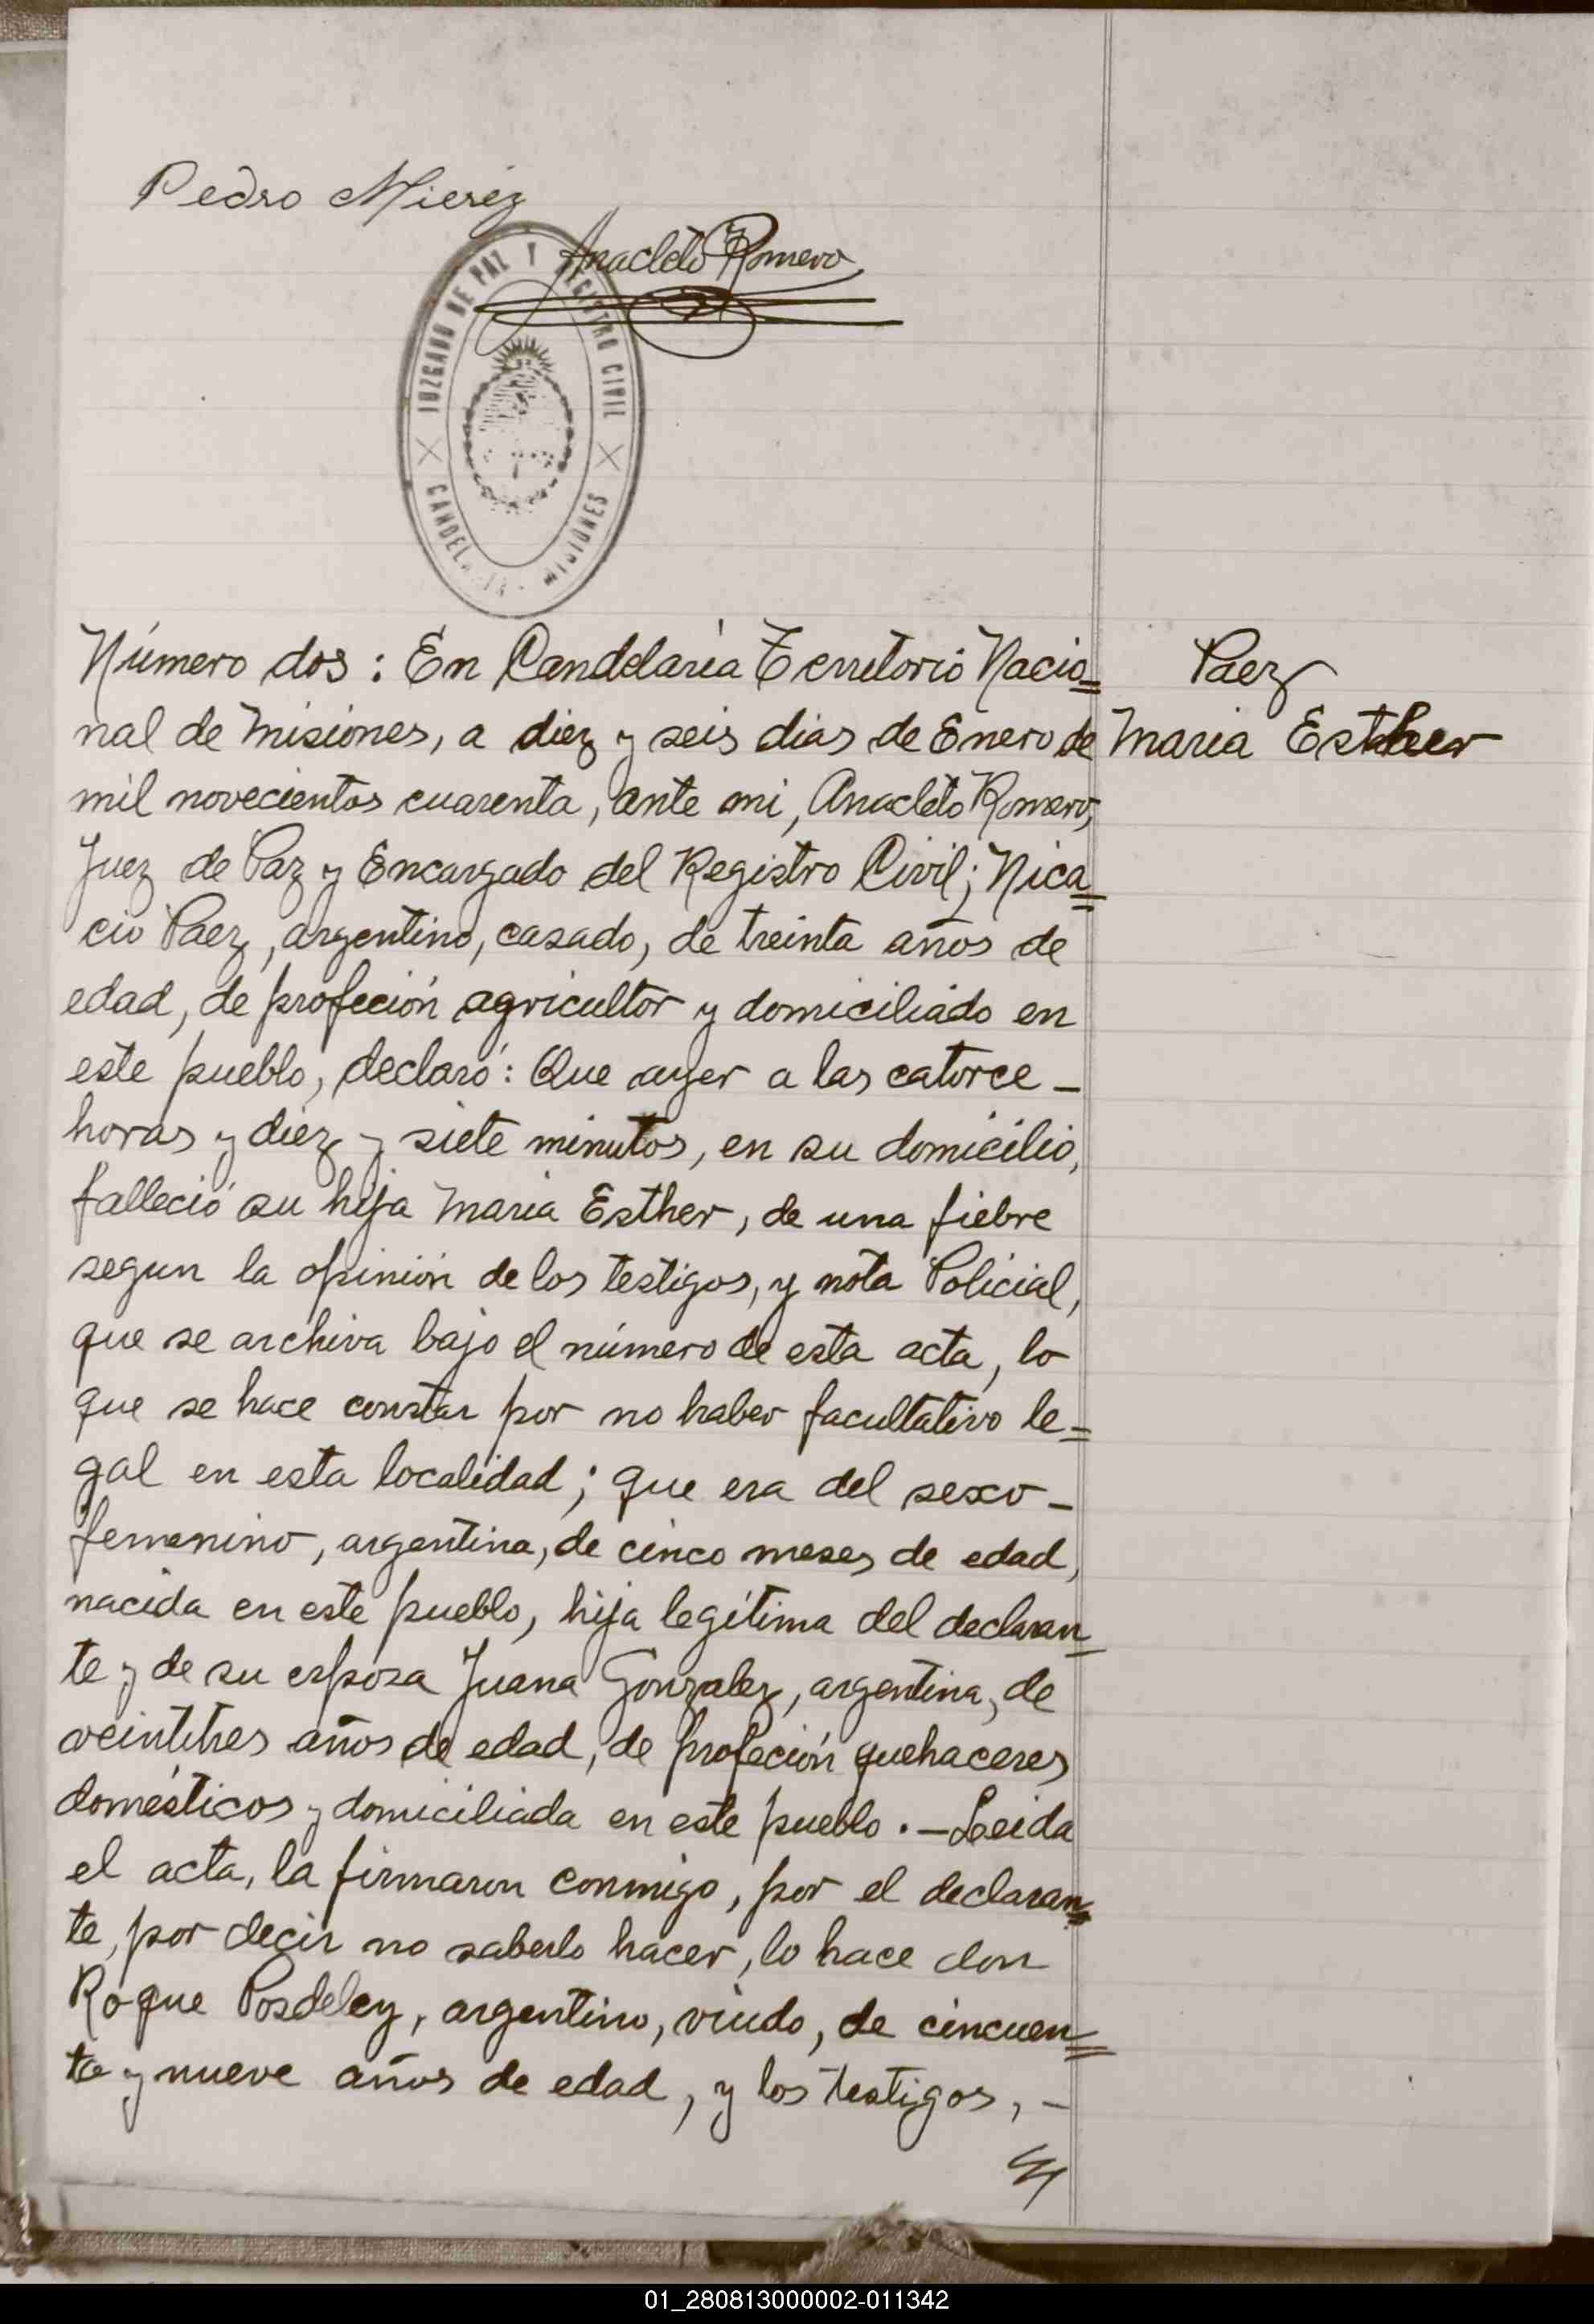 Pedro Mierez
Anacleto Romero
JUZGADO DE PAZ Y REGISTRO CIVIL
CANDELARIA - MISIONES
Número dos: En Candelaria Territorio Nacio=
nal de Misiones, a diez y seis dias de Enero de
mil novecientos cuarenta, ante mi, Anacleto Romero,
Juez de Paz y Encargado del Registro Civil; Nica=
cio Paez, argentino, casado, de treinta años de
edad, de profeción agricultor y domiciliado en
este pueblo, declaró: Que ayer a las catorce –
horas y diez y siete minutos, en su domicilio,
falleció su hija Maria Esther, de una fiebre
segun la opinión de los testigos, y nota Policial,
que se archiva bajo el número de esta acta, lo
que se hace constar por no haber facultativo le=
gal en esta localidad; que era del sexo –
femenino, argentina, de cinco meses de edad,
nacida en este pueblo, hija legítima del declaran-
te y de su esposa Juana Gonzalez, argentina, de
veintitres años de edad, de profeción quehaceres
domésticos y domiciliada en este pueblo. – Leida
el acta, la firmaron conmigo, por el declaran=
te, por decir no saberlo hacer, lo hace don
Roque Posdeley, argentino, viudo, de cincuen=
ta y nueve años de edad, y los testigos, –
Paez
Maria Esther
01_280813000002-011342